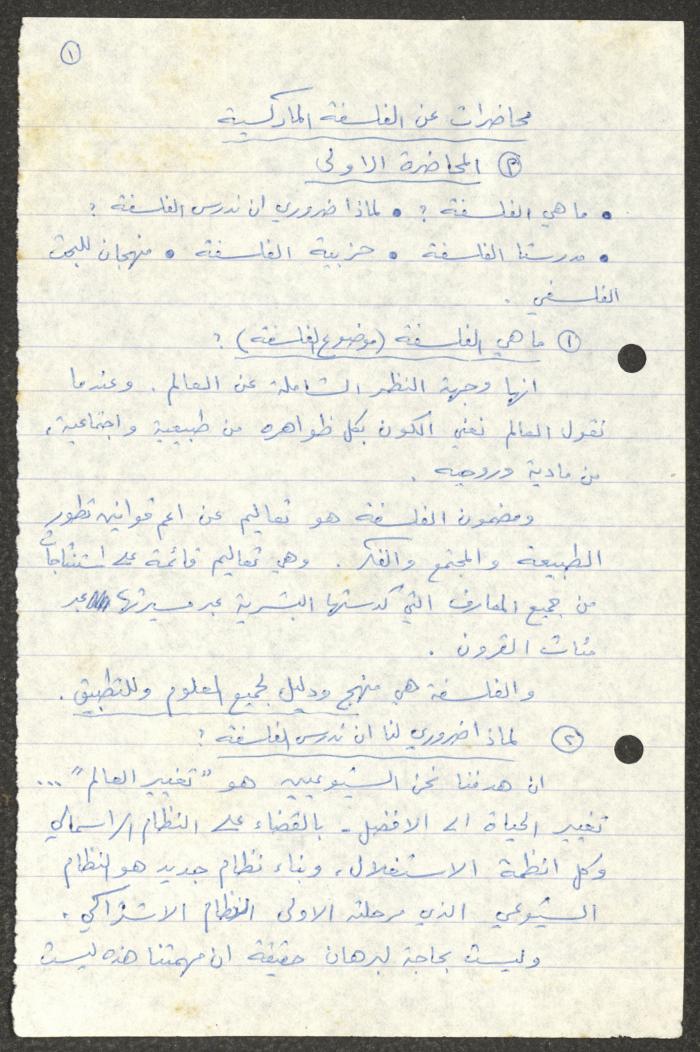 ١
محاضرات عن الفلسفة الماركسية
المحاضرة الاولى
• ما هي الفلسفة ؟ • لماذا ضروري ان ندرس الفلسفة ؟
• مدرستا الفلسفة • حزبية الفلسفة • منهجان للبحث
الفلسفي .
١ ما هي الفلسفة (موضوع الفلسفة) ؟
انها وجهة النظر الشاملة عن العالم . وعندما
نقول العالم نعني الكون بكل ظواهره من طبيعية واجتماعية،
من مادية وروحية .
ومضمون الفلسفة هو تعاليم عن اعم قوانين تطور
الطبيعة والمجتمع والفكر . وهي تعاليم قائمة على استنتاجات
من جميع المعارف التي كدستها البشرية عبر مسيرتها عبر
مئات القرون .
والفلسفة هي منهج ودليل لجميع العلوم وللتطبيق .
٢ لماذا ضروري لنا ان ندرس الفلسفة ؟
ان هدفنا نحن الشيوعيين هو "تغيير العالم" ...
تغيير الحياة الى الافضل - بالقضاء على النظام الراسمالي
وكل انظمة الاستغلال، وبناء نظام جديد هو النظام
الشيوعي الذي مرحلته الاولى النظام الاشتراكي .
وليست بحاجة لبرهان حقيقة ان مهمتنا هذه ليست